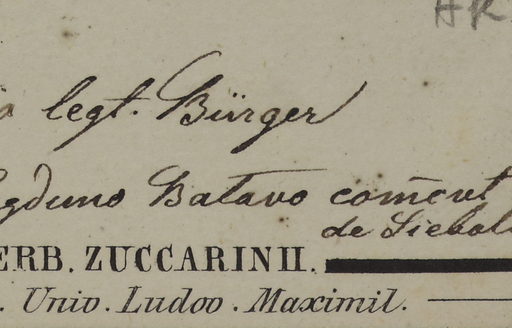 legt. Bürger
gduno Batavo com̄ent
de Siebol
ERB. ZUCCARINII.
. Univ. Ludov. Maximil.